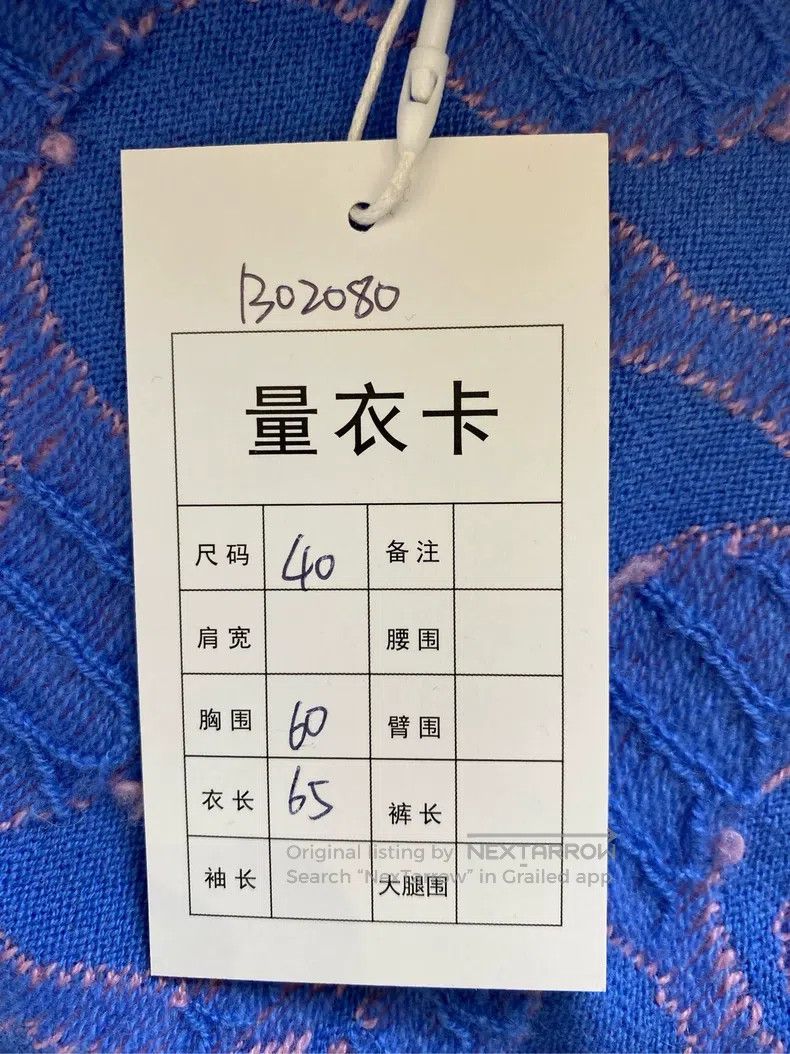 B02080
量衣卡
尺码 40 备注
肩宽 腰围
胸围 60 臂围
衣长 65 裤长
袖长 大腿围
Original listing by NEXTARROW
Search "NexTarrow" in Grailed app